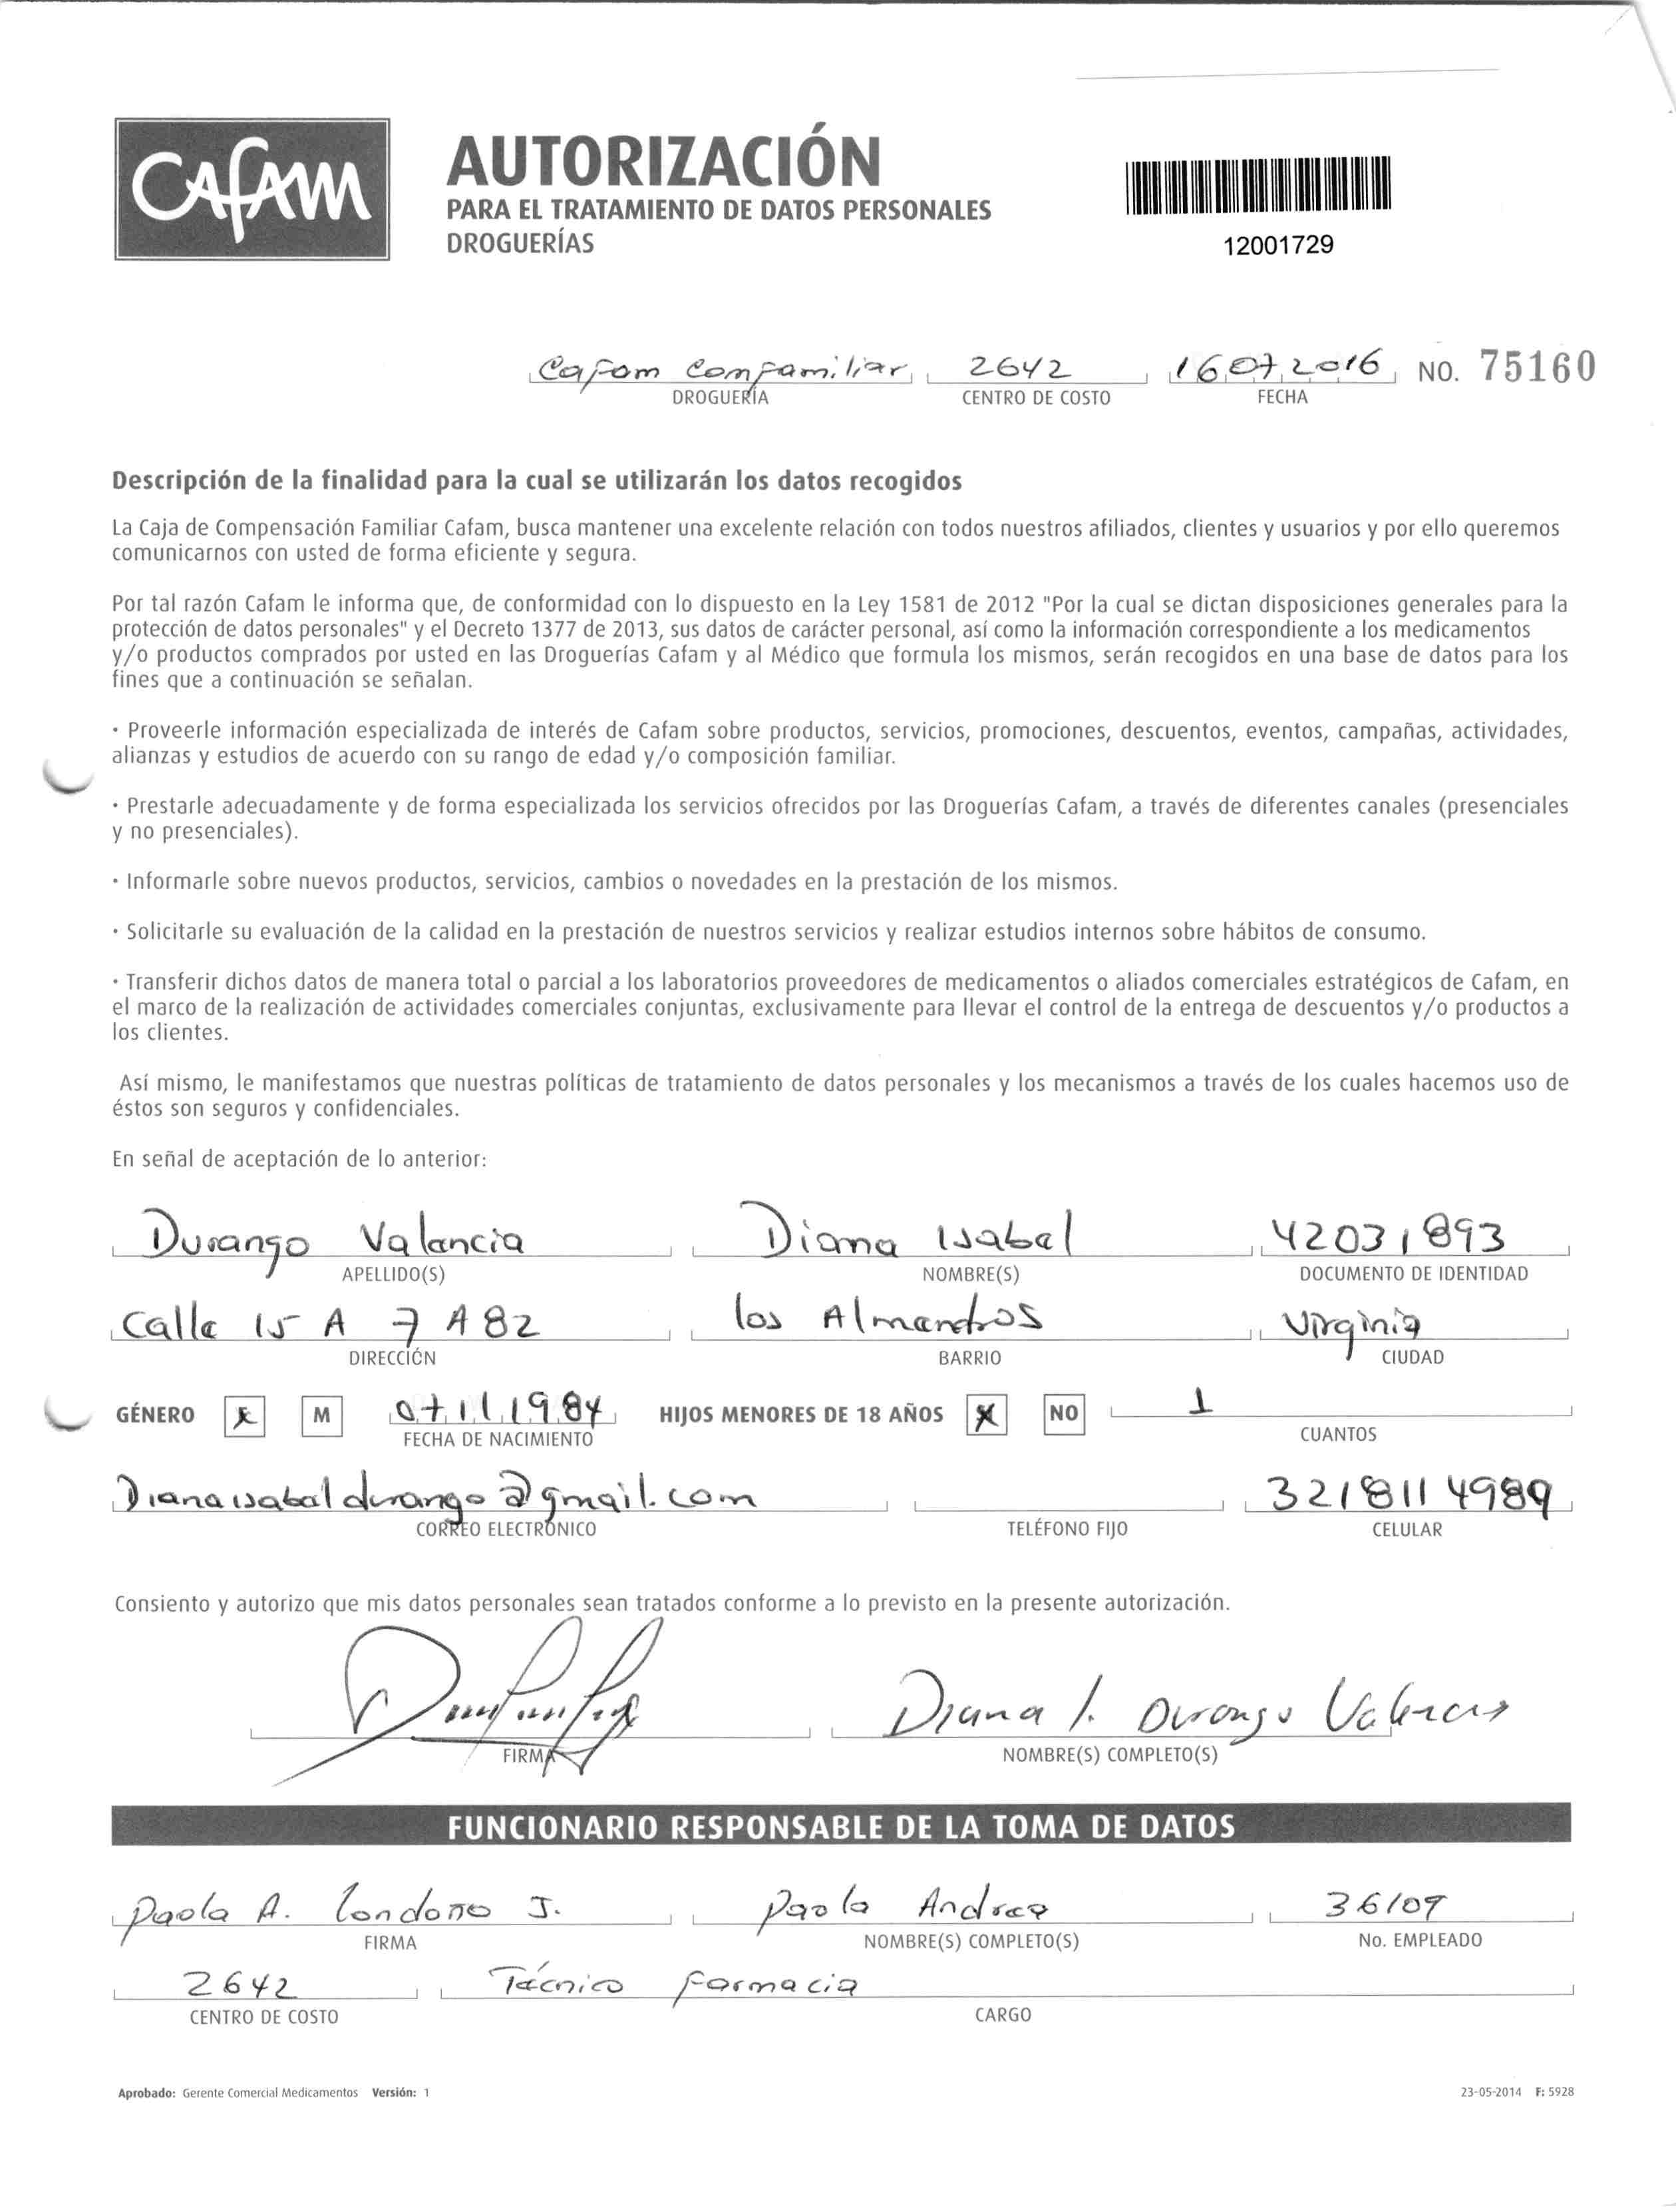 CAFAM
AUTORIZACIÓN
PARA EL TRATAMIENTO DE DATOS PERSONALES
DROGUERÍAS
12001729
Cafam Comfamiliar 2642 16072016 NO. 75160
DROGUERÍA CENTRO DE COSTO FECHA
Descripción de la finalidad para la cual se utilizarán los datos recogidos
La Caja de Compensación Familiar Cafam, busca mantener una excelente relación con todos nuestros afiliados, clientes y usuarios y por ello queremos
comunicarnos con usted de forma eficiente y segura.
Por tal razón Cafam le informa que, de conformidad con lo dispuesto en la Ley 1581 de 2012 "Por la cual se dictan disposiciones generales para la
protección de datos personales" y el Decreto 1377 de 2013, sus datos de carácter personal, así como la información correspondiente a los medicamentos
y/o productos comprados por usted en las Droguerías Cafam y al Médico que formula los mismos, serán recogidos en una base de datos para los
fines que a continuación se señalan.
· Proveerle información especializada de interés de Cafam sobre productos, servicios, promociones, descuentos, eventos, campañas, actividades,
alianzas y estudios de acuerdo con su rango de edad y/o composición familiar.
· Prestarle adecuadamente y de forma especializada los servicios ofrecidos por las Droguerías Cafam, a través de diferentes canales (presenciales
y no presenciales).
· Informarle sobre nuevos productos, servicios, cambios o novedades en la prestación de los mismos.
· Solicitarle su evaluación de la calidad en la prestación de nuestros servicios y realizar estudios internos sobre hábitos de consumo.
· Transferir dichos datos de manera total o parcial a los laboratorios proveedores de medicamentos o aliados comerciales estratégicos de Cafam, en
el marco de la realización de actividades comerciales conjuntas, exclusivamente para llevar el control de la entrega de descuentos y/o productos a
los clientes.
Así mismo, le manifestamos que nuestras políticas de tratamiento de datos personales y los mecanismos a través de los cuales hacemos uso de
éstos son seguros y confidenciales.
En señal de aceptación de lo anterior:
Durango Valencia Diana Isabel 42031893
APELLIDO(S) NOMBRE(S) DOCUMENTO DE IDENTIDAD
Calle 15 A 7 A 82 los Almendros Virginia
DIRECCIÓN BARRIO CIUDAD
GÉNERO F M 07111984 HIJOS MENORES DE 18 AÑOS X NO 1
FECHA DE NACIMIENTO CUANTOS
Dianaisabeldurango@gmail.com 3218114989
CORREO ELECTRÓNICO TELÉFONO FIJO CELULAR
Consiento y autorizo que mis datos personales sean tratados conforme a lo previsto en la presente autorización.
Diana I. Durango Valencia
FIRMA NOMBRE(S) COMPLETO(S)
FUNCIONARIO RESPONSABLE DE LA TOMA DE DATOS
Paola A. Londoño J. Paola Andrea 36109
FIRMA NOMBRE(S) COMPLETO(S) No. EMPLEADO
2642 Técnico Farmacia
CENTRO DE COSTO CARGO
Aprobado: Gerente Comercial Medicamentos Versión: 1 23-05-2014 F: 5928